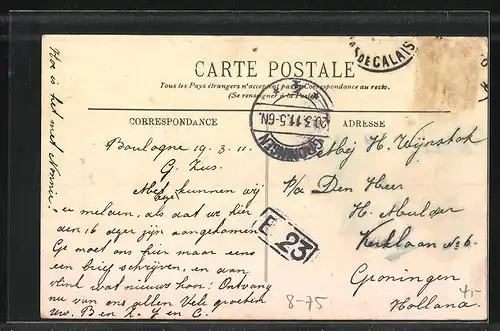 PAS DE CALAIS
CARTE POSTALE
Tous les Pays étrangers n'acceptent pas la Correspondance au recto.
(Se renseigner à la Poste)
CORRESPONDANCE
ADRESSE
GRONINGEN
20.3.11.5-6N.
Hoe is het met Nonnie?
Boulogne 19.3.11.
G. Zus.
kunnen wij
u melden, als dat we hier
den 16 dezer zijn aangekomen
Ge moet ons hier maar eens
een brief schrijven, en aan
wat nieuws hoor. Ontvang
nu van ons allen Vele groeten
uw. B en Z. Y en C.
Mej H. Wijnstok
p/a Den Heer
H. Mulder
Kerklaan No 6.
Groningen
Holland
E 23
8-75
4,-